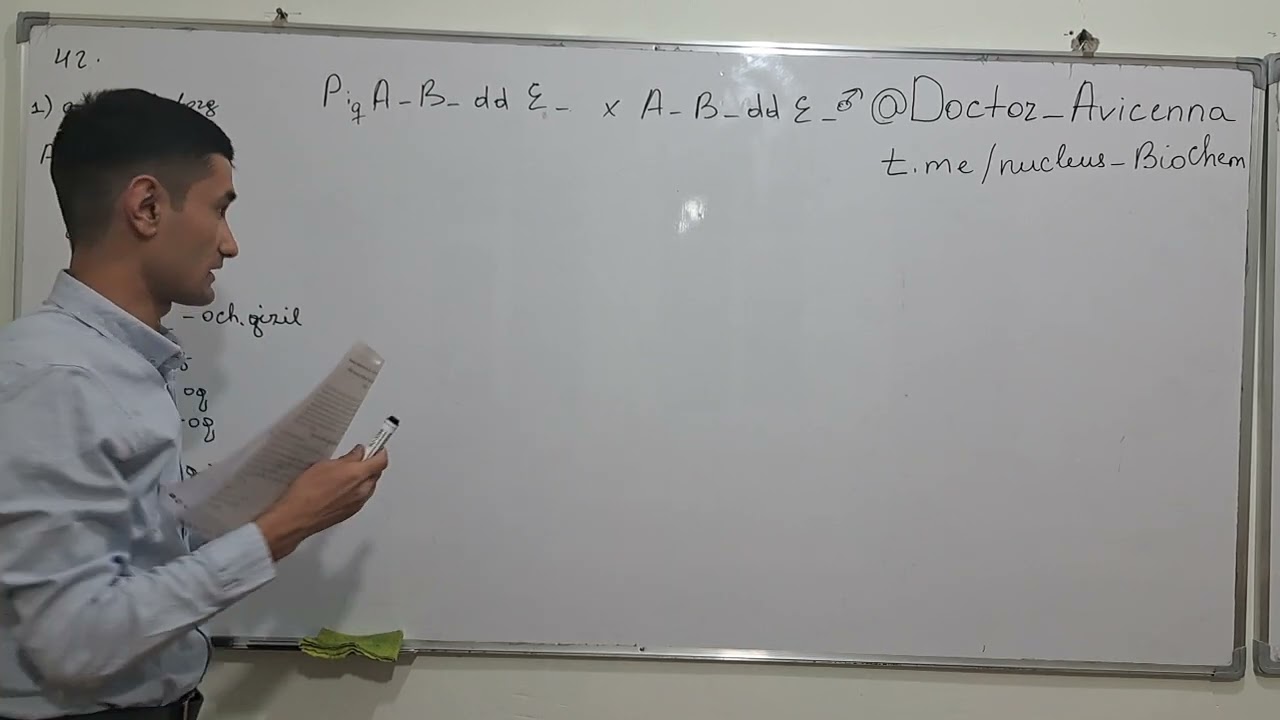 42.
1)
P ♀ A_B_ dd E_ x A_B_dd E_♂ @Doctor_Avicenna
t.me/nucleus_Biochem
- och.qizil
oq
oq